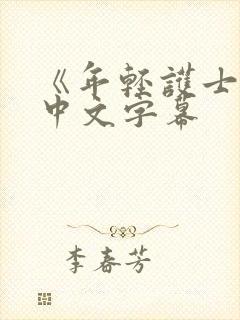 《年轻護士
中文字幕
李春芳